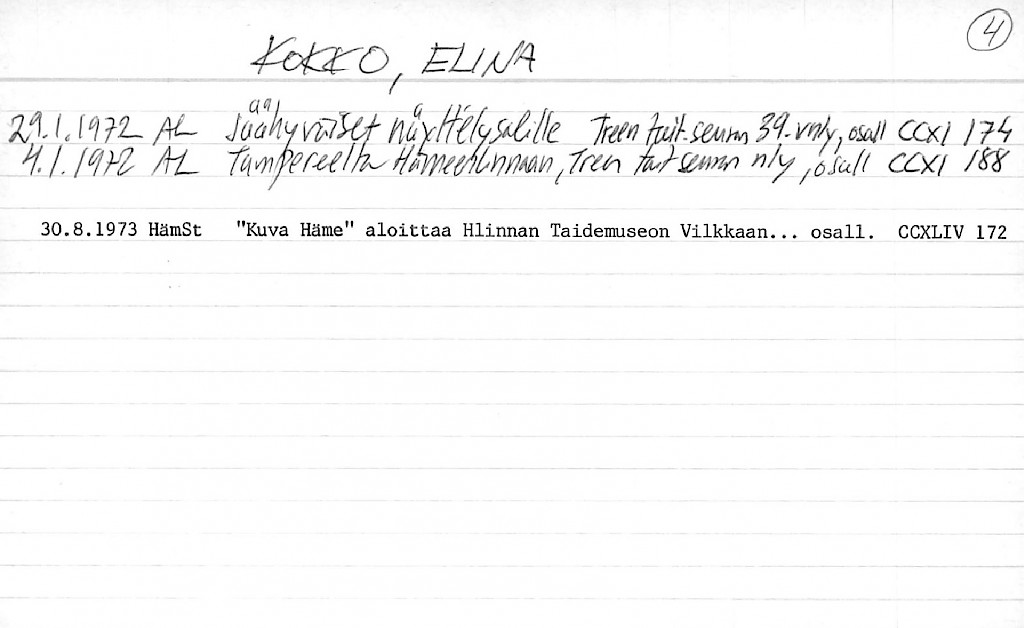 4
KOKKO, ELINA
29.1.1972 AL Jäähyväiset näyttelysalille Treen tait.seuran 39. vnly, osall CCXI 174
4.1.1972 AL Tampereelta Hämeenlinnaan, Treen tait seuran nly, osall CCXI 188
30.8.1973 HämSt "Kuva Häme" aloittaa Hlinnan Taidemuseon Vilkkaan... osall. CCXLIV 172